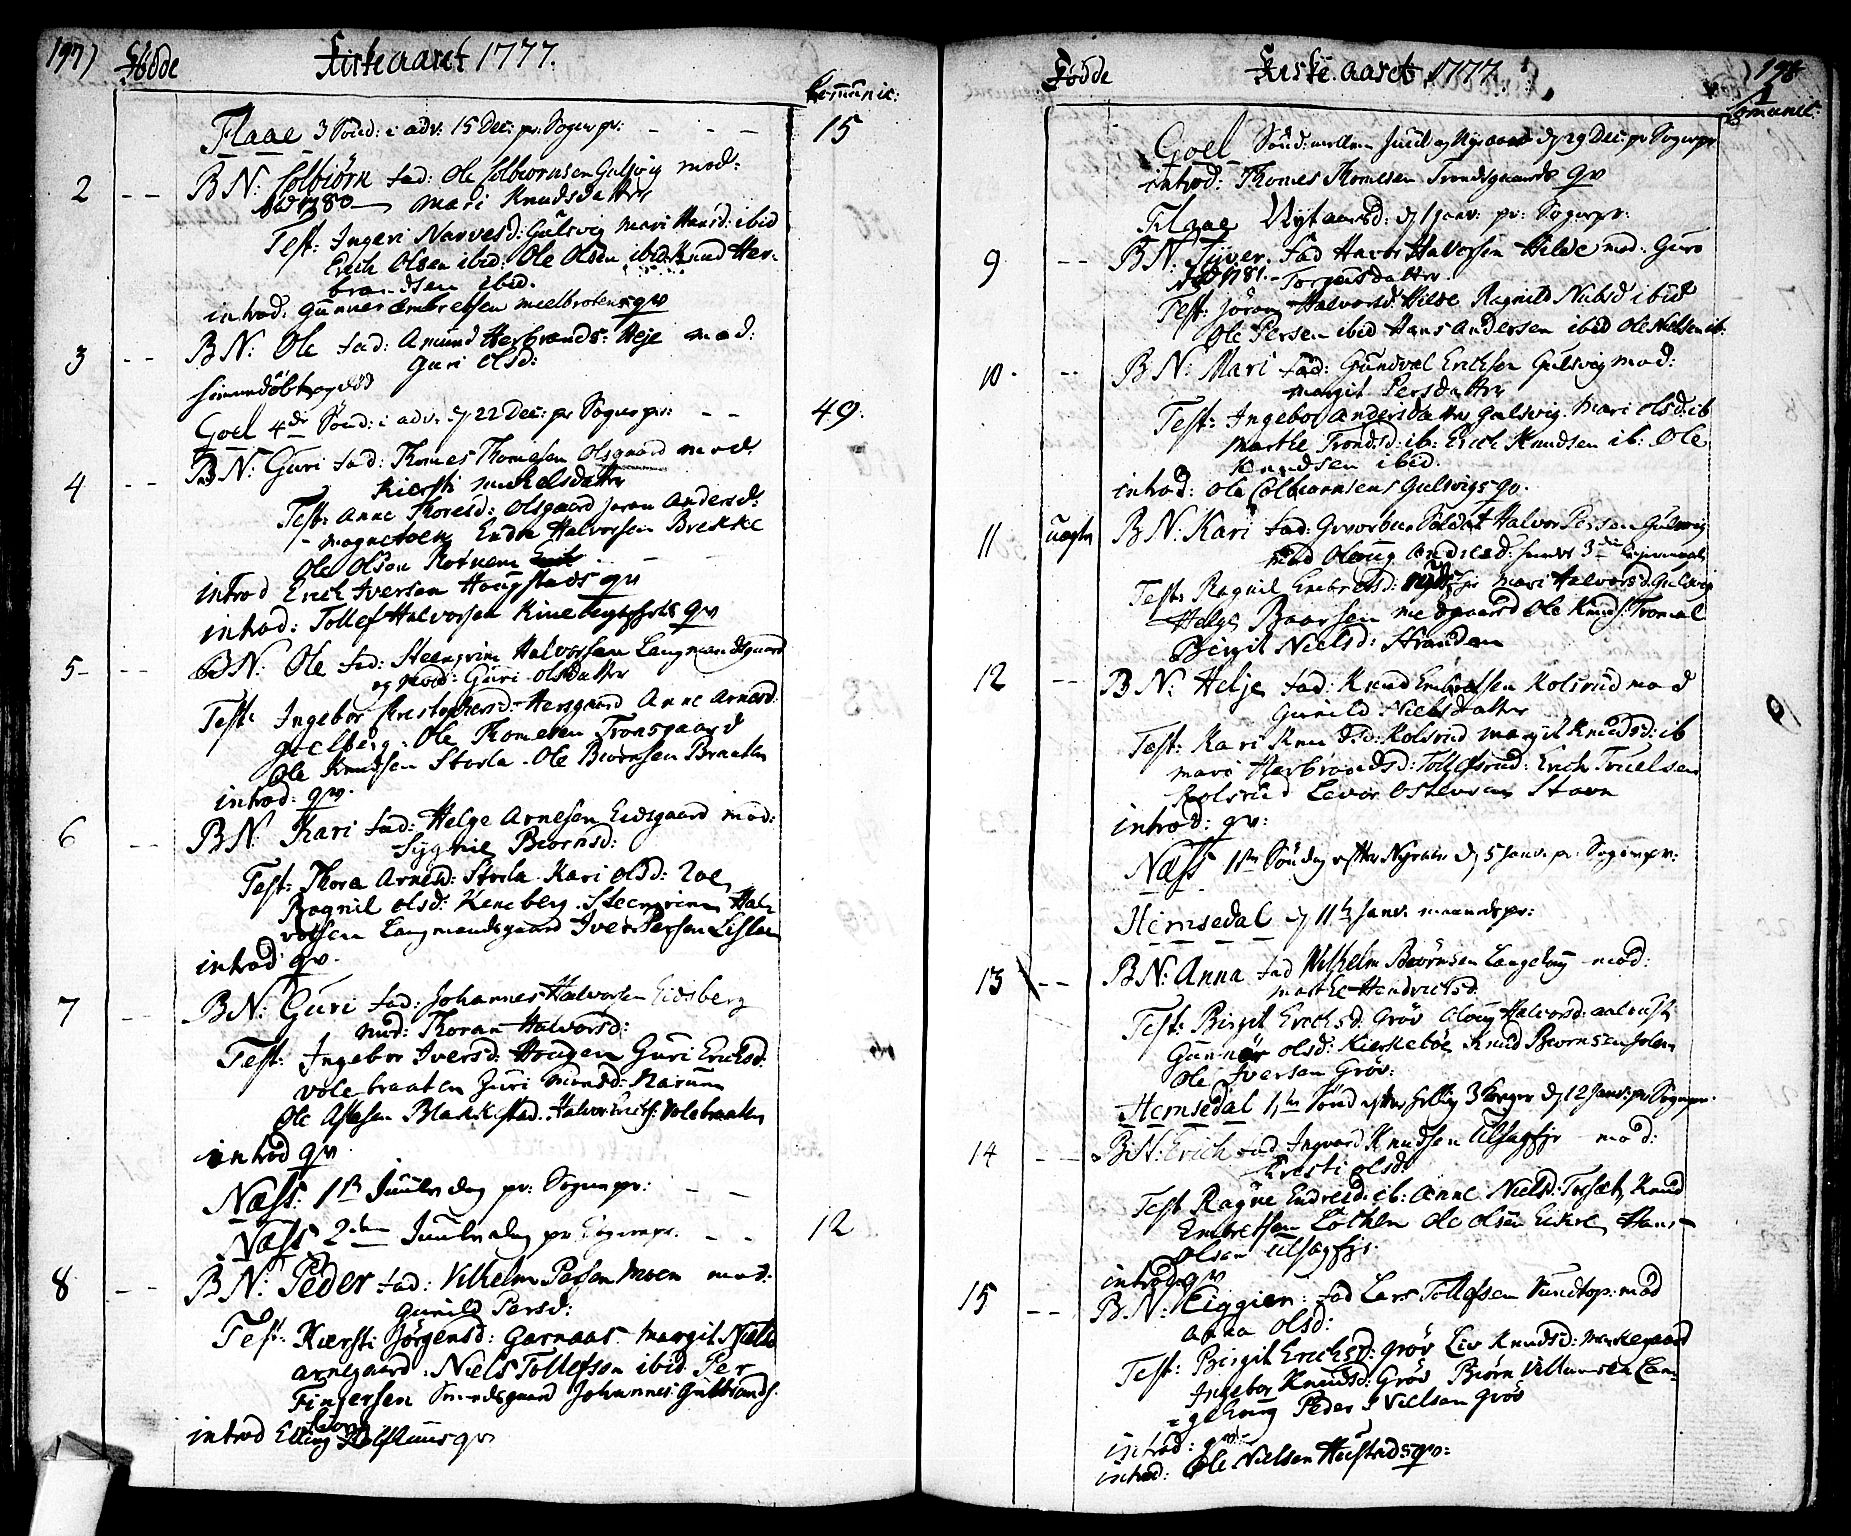 197)
Fødde
Kirke aaret 1777.
Comunic:
Flaae 3 Sønd: i adv: 15 Dec: pr: Sogerpr: - - - 15
2 - - BN: Colbiörn fad: Ole Colbiornsen Gulsvig mod:
død 1780 Mari Knudsdatter
Test: Ingeri Narvesd: Gulsvig Mari Hansd: ibid
Erich Olsen ibid: Ole Olsen ibid: Knud Her-
brandsen ibid.
introd. Gunner Embretsen meelbrotens qv
3 - - BN: Ole fad: Amund Herbrands: Heje mod:
Guri Olsd:
hiemmedøbt og død
Goel 4de Sønd: i adv. d 22 Dec: pr Sogerpr: - - 49.
4 - - BN: Guri fad: Thomes Thomesen Olsgaard mod:
Kiersti Mickelsdatter
Test: Anne Thoresd: Olsgaard Joran Andersd:
Magnetoen Endre Halvorsen Brekke
Ole Olsen Rotnem
introd Erich Iversen Hougstads qv
introd: Tollef Halvorsen qv
5 - - BN: Ole fad: Steengrim Halvorsen Langmandsgaard
og mod: Guri Olsdatter
Test: Ingebor Christophersd: Hersgaard Anne Arnesd:
Goelberg. Ole Thomesen Tronsgaard
Ole Knudsen Storla. Ole Biørnsen Braaten
introd: qv.
6 - - BN: Kari fad: Helge Arnesen Eidsgaard mod:
Sygnil Biornsd:
Test: Thora Arnesd: Storla Kari Olsd:
Ragnil Olsd: Keneberg. Steengrim Hal-
vorsen Langmandsgaard Iver Persen
introd qv.
7 - - BN: Guri fad: Johannes Halvorsen Eidsberg
mod: Thoran Halvorsd:
Test: Ingebor Iversd: Hougen Guri Erichsd:
volebraaten Guri Monsd:
Ole Aslesen Blakkestad. Halvor Erichs: volebraaten
introd qv
Næss. 1te Juuledag pr: Sogerpr: - -
Næss 2den Juuledag pr Sogerpr. - - 12
8 - - BN: Peder fad: Vilhelm Persen Moen mod:
Gunild Persd:
Test: Kiersti Jörgensd: Garnaas Margit Nielsd
Arnegaard. Niels Tollefsen ibid Per
Fingersen Johannes Gulbrands:
introd Elling qv

198
Fødde
Kirke aaret 1777.
Comunic:
Goel Sønd: mellem Juul og Nyaaret d 29 Dec: pr Sogerpr
introd: Thomes Thomesen Trondsgaards qv
Flaae Nytaarsd: d 1 Janv: pr: Sogerpr:
9 - - BN: Syver. fad Havor Halvorsen Hilde mod. Guro
død 1781. - Torgersdatter.
Test: Jöran Halvorsd Hilde Ragnild Nubsd ibid
Ole Persen ibid Hans Andersen ibid Ole Nielsen ib.
10. - - BN: Mari fad: Gundvel Erichsen Gulsvig mod:
Margit Persdatter
Test: Ingebor Andersdatter Gulsvig. Mari Olsd: ib
Marthe Trondsd: ib: Erich Knudsen ib: Ole
Knudsen ibid.
introd: Ole Colbiornsens Gulsvigs qv.
11 uægte BN: Kari fad: Gevorben Soldat Halvor Persen Gulsvig
mod Oloug Andresd: hendes 3die
Test: Ragnil Embretsd: Mari Halvorsd: Gulsvig
Helge Baarsen Medgaard Ole Knuds: Tromal
Birgit Nielsd: Stranden
12 - - BN: Helje fad: Knud Embretsen Kolsrud mod
Gunild Nielsdatter
Test: Kari Knudsd: Kolsrud Margit Knudsd: ib
Mari Herbrandsd: Tollefsrud: Erich Truelsen
Kolsrud Levor Ostensen Stavn
introd: qv:
Næss 1te Søndag efter Nyaar d 5 Janv. pr. Sogerpr:
Hemsedal d 11te Janv. maanedspr:
13 - - BN: Anna fad Vilhelm Beörnsen Langehoug mod:
Marthe Hendrichsd:
Test: Birgit Erichsd: Gröv Oloug Halvorsd:
Gunner Olsd: Kierkeböe Knud Beornsen
Ole Iversen Gröv:
Hemsedal 1te Sønd efter Hellig 3 Konger d 12 Janv: pr Sogerpr.
14 - - BN: Erich fad Ingvard Knudsen Ulsagfjr mod:
Kristi Olsd:
Test Ragne Endresd: ib: Anne Nielsd: Torsæt, Knud
Embretsen Löthen Ole Olsen Hans
Olsen Ulsagfjr.
introd: qv
15 - - BN: Eiggien: fad Lars Tollefsen mod
Anna Olsd:
Test: Birgit Erichsd: Gröv Liv Knudsd: Markegaard
Ingebor Knudsd: Gröv Biörn Villumsen Lan-
gehoug Peder Nielsen Gröv
introd: qv
introd: Ole Nielsen Huestads qv: